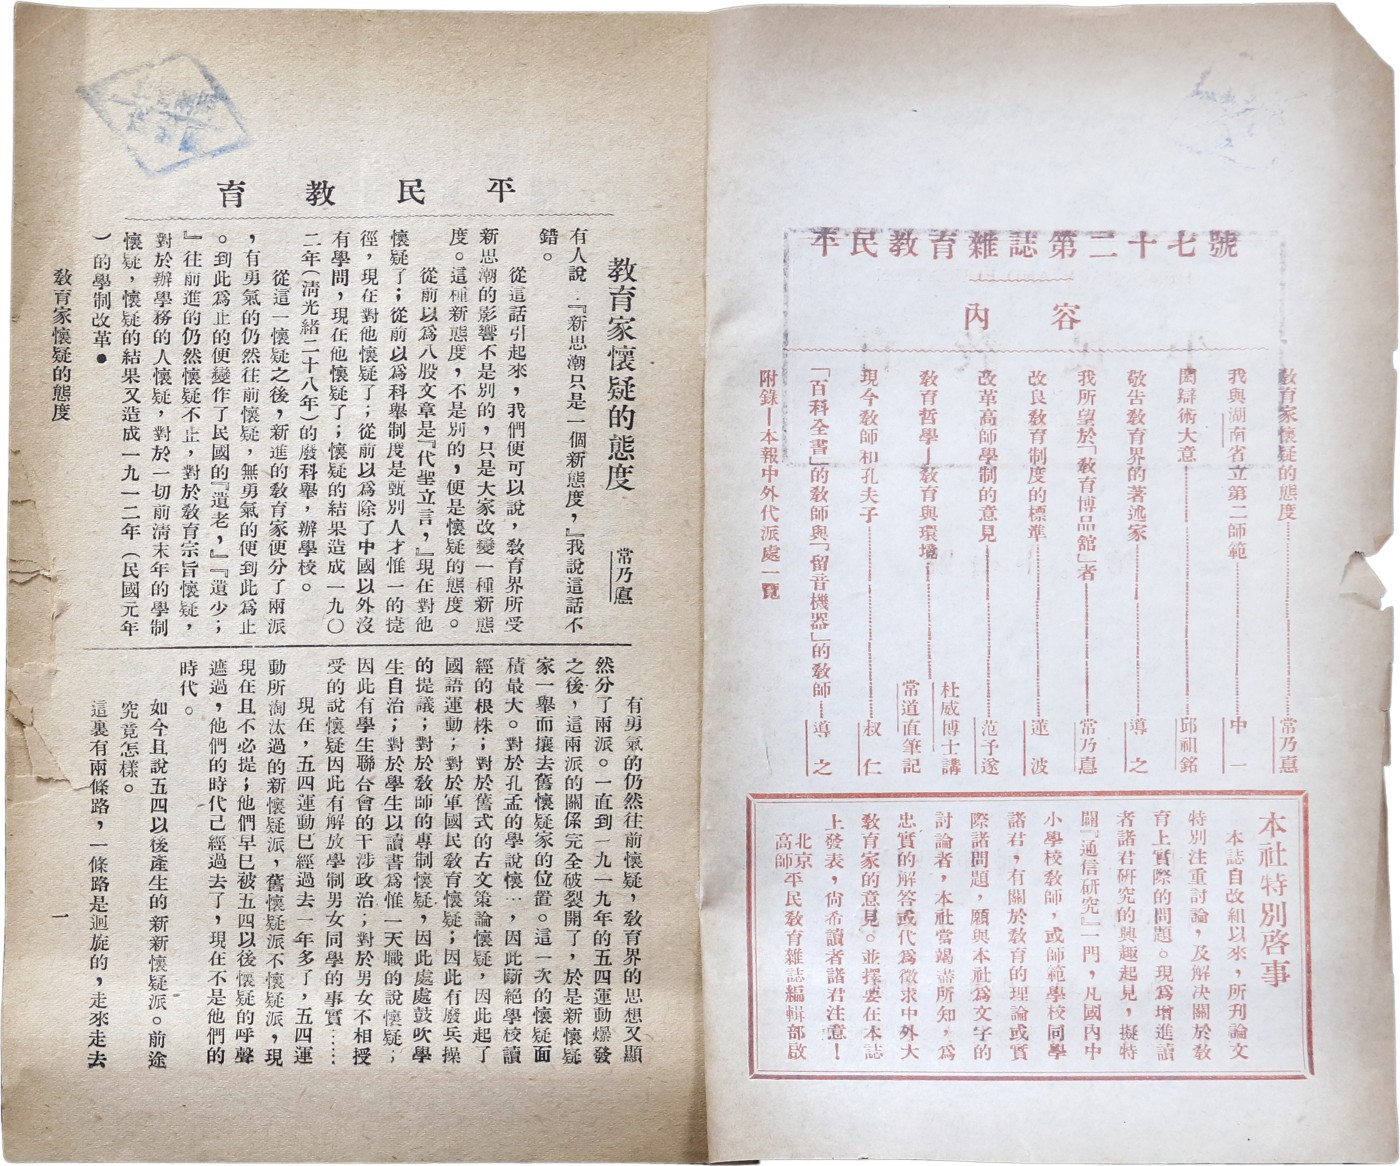 平民教育雜誌第二十七號
內容
教育家懷疑的態度……常乃悳
我與湖南省立第二師範……中一
閎辯術大意……邱祖銘
敬告敎育界的著述家……導之
我所望於「敎育博品館」者……常乃悳
改良敎育制度的標準……蓮波
改革高師學制的意見……范予遂
敎育哲學—敎育與環境……杜威博士講
常道直筆記
現今敎師和孔夫子……叔仁
「百科全書」的敎師與「留音機器」的敎師—導之
附錄—本報中外代派處一覽
本社特別啓事
本誌自改組以來，所刊論文
特別注重討論，及解決關於敎
育上實際的問題。現爲增進讀
者諸君硏究的興趣起見，擬特
闢『通信硏究』一門，凡國內中
小學校敎師，或師範學校同學
諸君，有關於敎育的理論或實
際諸問題，願與本社爲文字的
討論者，本社當竭盡所知，爲
忠實的解答或代爲徵求中外大
敎育家的意見。並擇要在本誌
上發表，尙希讀者諸君注意！
北京高師平民敎育雜誌編輯部啟
平民敎育
敎育家懷疑的態度
常乃悳
有人說．『新思潮只是一個新態度，』我說這話不
錯。
從這話引起來，我們便可以說，敎育界所受
新思潮的影響不是別的，只是大家改變一種新態
度。這種新態度，不是別的，便是懷疑的態度。
從前以爲八股文章是『代聖立言，』現在對他
懷疑了；從前以爲科舉制度是甄別人才惟一的捷
徑，現在對他懷疑了；從前以爲除了中國以外沒
有學問，現在他懷疑了；懷疑的結果造成一九〇
二年（淸光緖二十八年）的廢科舉，辦學校。
從這一懷疑之後，新進的敎育家便分了兩派
，有勇氣的仍然往前懷疑，無勇氣的便到此爲止
。到此爲止的便變作了民國的『遺老，』『遺少；
』往前進的仍然懷疑不止，對於敎育宗旨懷疑，
對於辦學務的人懷疑，對於一切前淸末年的學制
懷疑，懷疑的結果又造成一九一二年（民國元年
）的學制改革●
有勇氣的仍然往前懷疑，敎育界的思想又顯
然分了兩派。一直到一九一九年的五四運動爆發
之後，這兩派的關係完全破裂開了，於是新懷疑
家一舉而攘去舊懷疑家的位置。這一次的懷疑面
積最大。對於孔孟的學說懷，因此斷絕學校讀
經的根株；對於舊式的古文策論懷疑，因此起了
國語運動；對於軍國民敎育懷疑；因此有廢兵操
的提議；對於敎師的專制懷疑，因此處處鼓吹學
生自治；對於學生以讀書爲惟一天職的說懷疑；
因此有學生聯合會的干涉政治；對於男女不相授
受的說懷疑因此有解放學制男女同學的事實……
現在，五四運動已經過去一年多了，五四運
動所淘汰過的新懷疑派，舊懷疑派不懷疑派，現
現在且不必提；他們早已被五四以後懷疑的呼聲
遮過，他們的時代已經過去了，現在不是他們的
時代。
如今且說五四以後產生的新新懷疑派。前途
究竟怎樣。
這裏有兩條路，一條路是迴旋的，走來走去
敎育家懷疑的態度
一